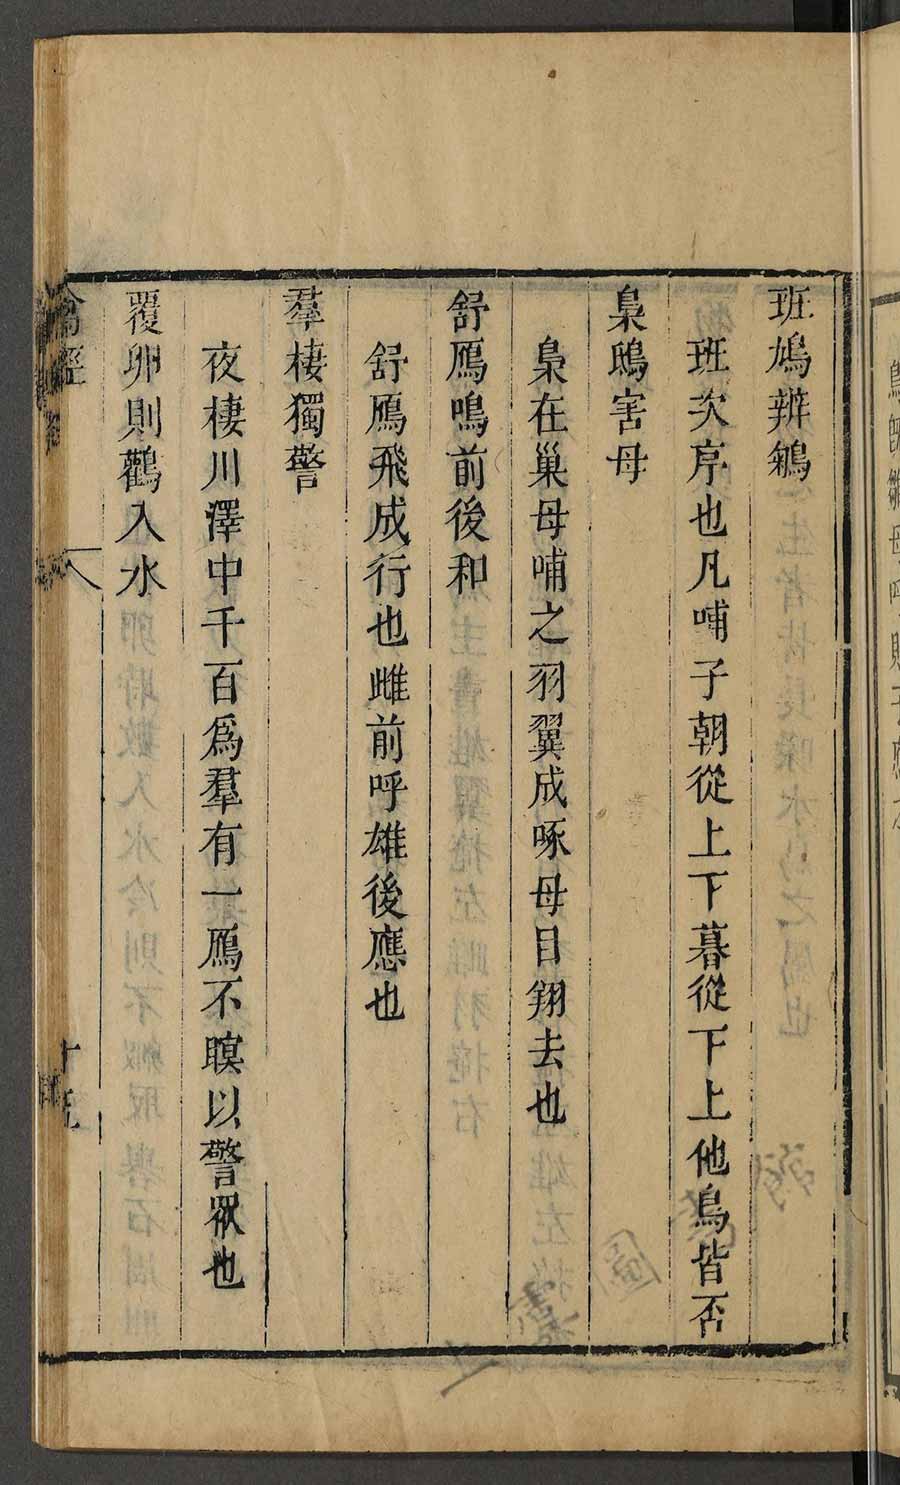 班鳩辨鵴
班次序也凡哺子朝從上下暮從下上他鳥皆否
梟鴟害母
梟在巢母哺之羽翼成啄母目翔去也
舒鴈鳴前後和
舒鴈飛成行也雌前呼雄後應也
羣棲獨警
夜棲川澤中千百爲羣有一鴈不瞑以警衆也
覆卵則鸛入水
禽經